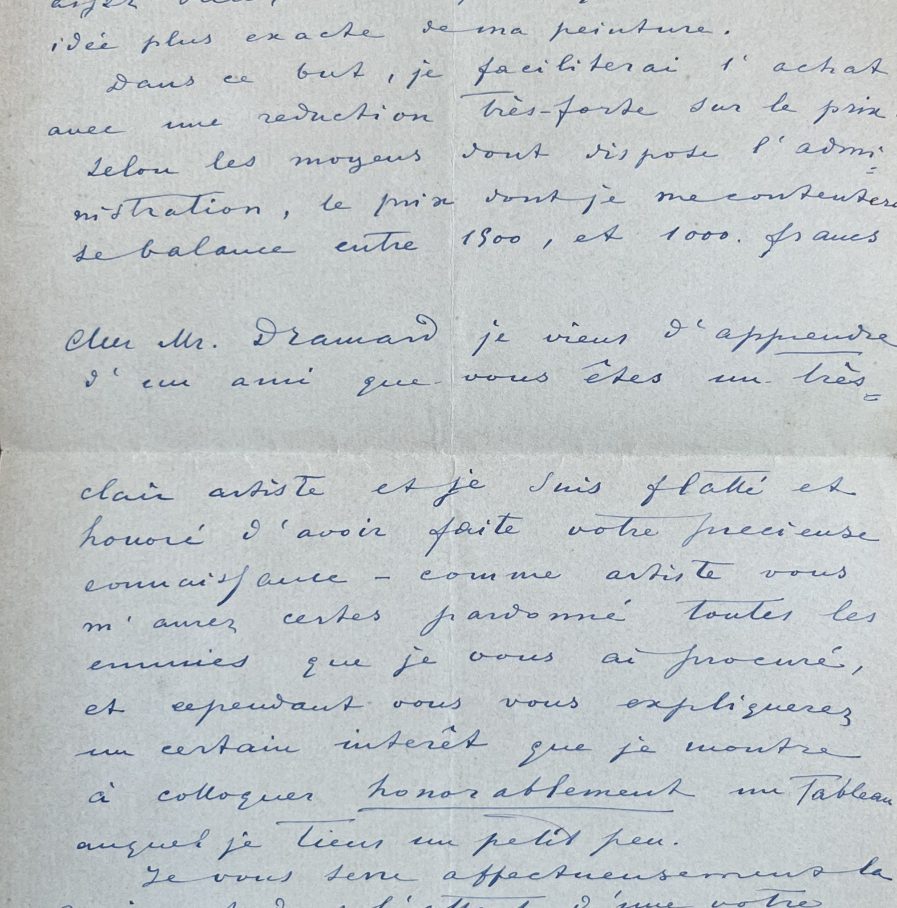 idée plus exacte de ma peinture.
Dans ce but, je faciliterai l'achat
avec une reduction très-forte sur le prix.
Selon les moyens dont dispose l'admi=
nistration, le prix dont je me contenterai
se balance entre 1500, et 1000. francs
Cher Mr. Dramard je viens d'apprendre
d'un ami que vous êtes un très=
clair artiste et je suis flatté et
honoré d'avoir faite votre precieuse
connaissance – comme artiste vous
m'aurez certes pardonné toutes les
ennuies que je vous ai procuré,
et cependant vous vous expliquerez
un certain interêt que je montre
à colloquer honorablement un Tableau
auquel je tiens un petit peu.
Je vous serre affectueusement la
d'une votre